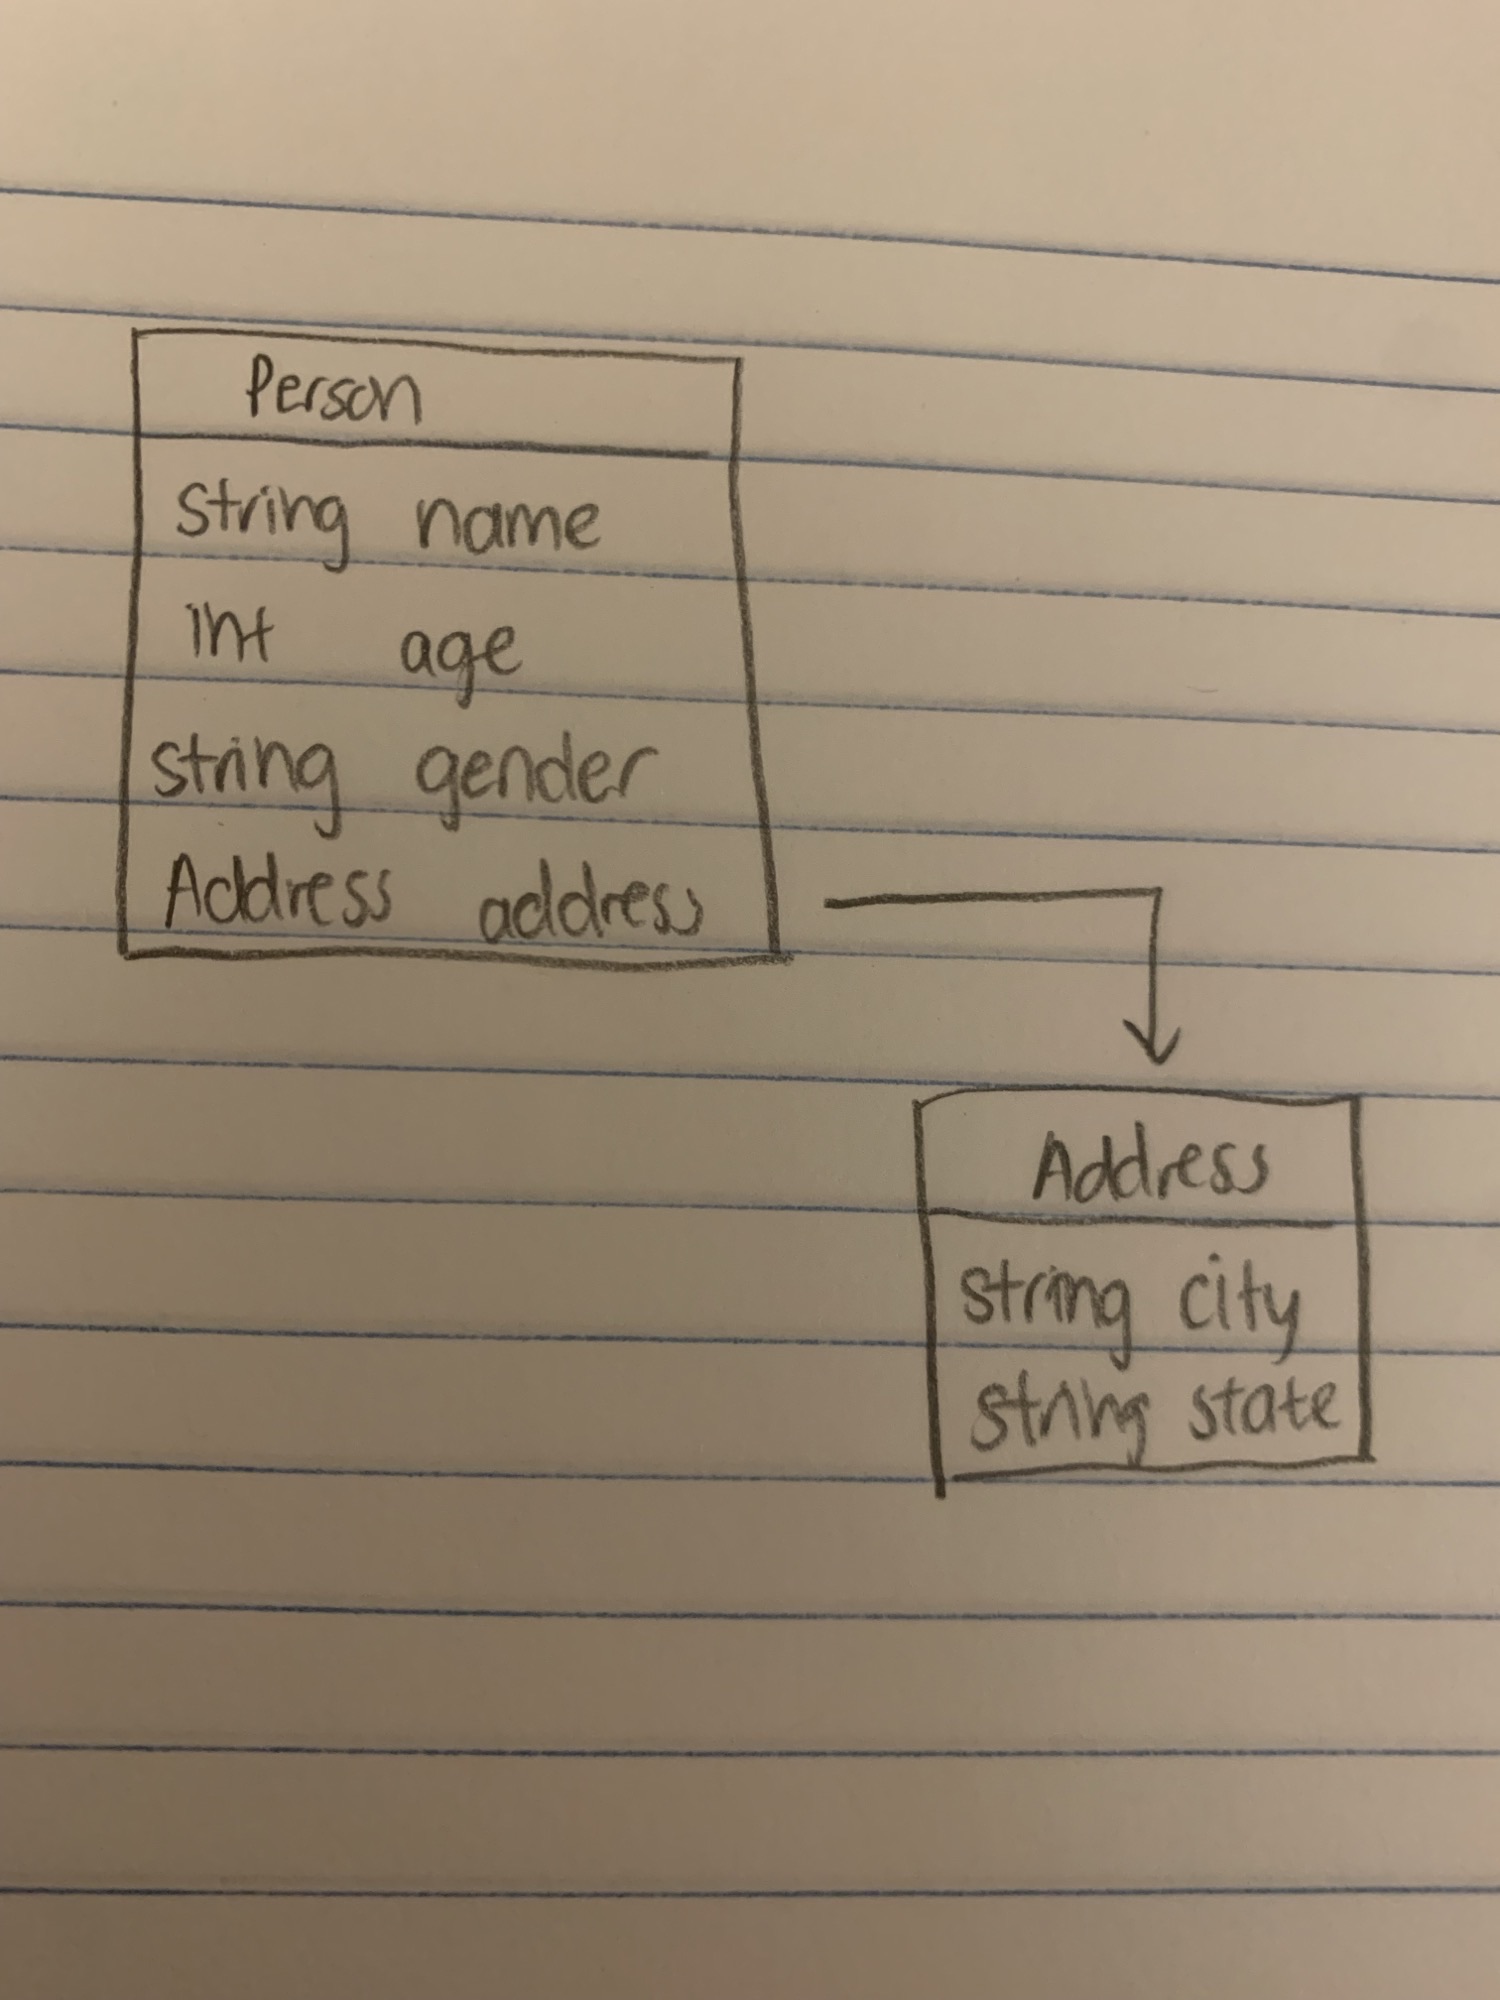 Person
string name
int age
string gender
Address address
Address
string city
string state